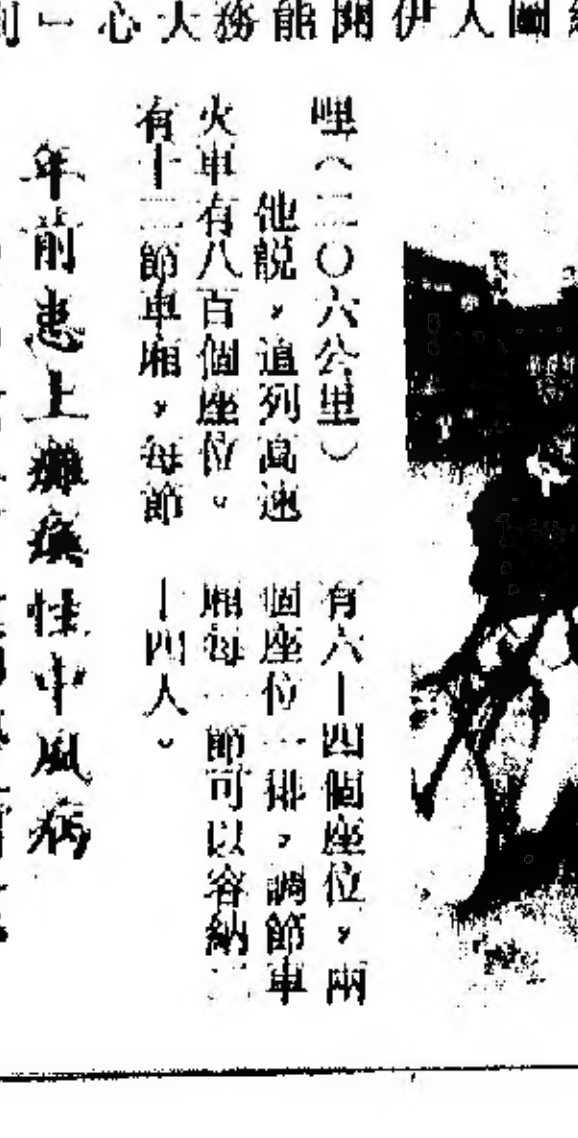 圖人伊開能務大心「
哩（二〇六公里）
他說，這列高速
火車有八百個座位。
有十二節車廂，每節
有六十四個座位，兩
個座位一排，調節車
廂每一節可以容納二
十四人。
年前患上癱瘓性中風病